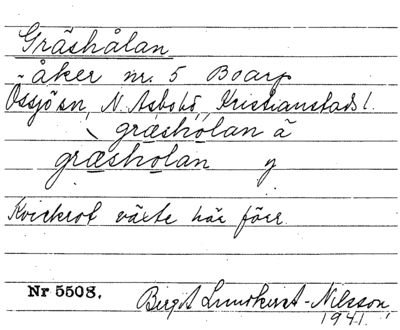 Gräshålan
åker nr. 5 Boarp
Össjö sn, N. Åsbo hd, Kristianstads l.
græshòlan ä
græsholan y
Kvickrot växte här förr
Nr 5508.
Birgit Lundkvist-Nilsson
1941.